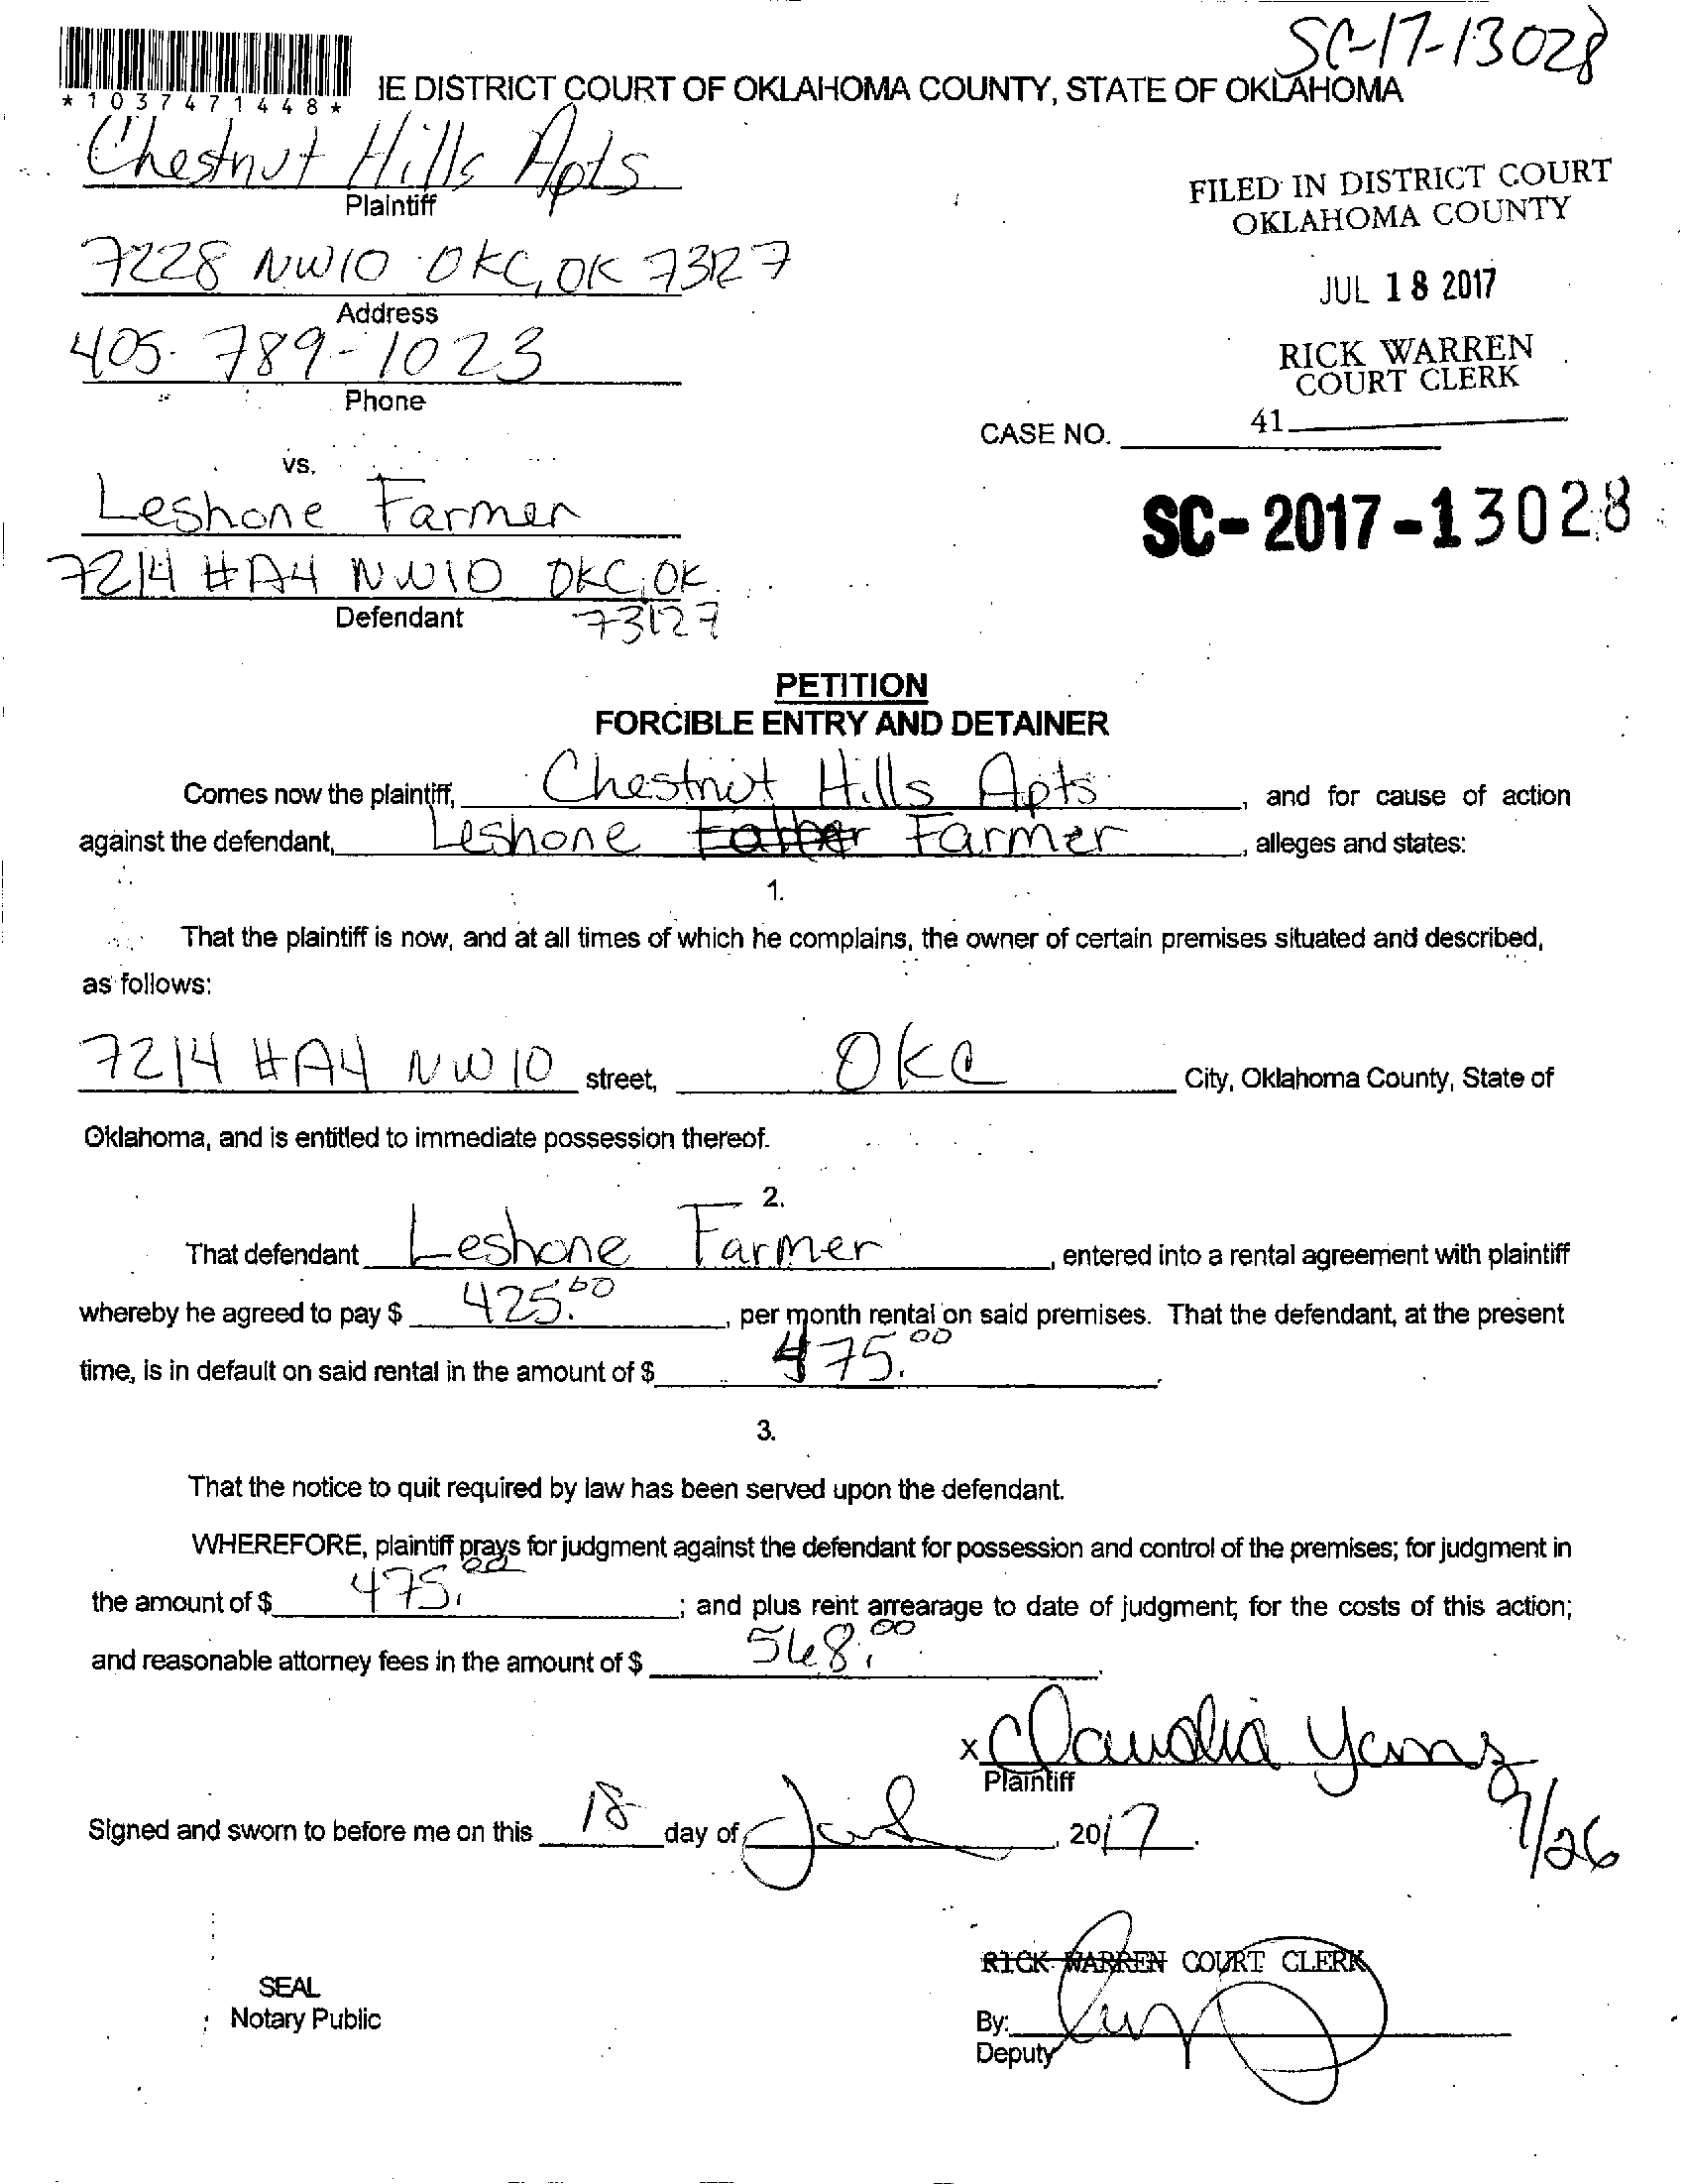 SC-17-13028
*1037471448*
IE DISTRICT COURT OF OKLAHOMA COUNTY, STATE OF OKLAHOMA
Chestnut Hills Apts
Plaintiff
7228 NW10 OKC, OK 73127
Address
405-789-1023
Phone
FILED IN DISTRICT COURT
OKLAHOMA COUNTY
JUL 18 2017
RICK WARREN
COURT CLERK
41
CASE NO.
SC-2017-13028
vs.
Leshone Farmer
7214 #A4 NW10 OKC, OK
73127
Defendant
PETITION
FORCIBLE ENTRY AND DETAINER
Comes now the plaintiff, Chestnut Hills Apts, and for cause of action
against the defendant, Leshone Farmer, alleges and states:
1.
That the plaintiff is now, and at all times of which he complains, the owner of certain premises situated and described,
as follows:
7214 #A4 NW 10 street, OKC City, Oklahoma County, State of
Oklahoma, and is entitled to immediate possession thereof.
2.
That defendant Leshone Farmer, entered into a rental agreement with plaintiff
whereby he agreed to pay $ 425.00, per month rental on said premises. That the defendant, at the present
time, is in default on said rental in the amount of $ 475.00.
3.
That the notice to quit required by law has been served upon the defendant.
WHEREFORE, plaintiff prays for judgment against the defendant for possession and control of the premises; for judgment in
the amount of $ 475.00; and plus rent arrearage to date of judgment; for the costs of this action;
and reasonable attorney fees in the amount of $ 568.00.
x Claudia
Plaintiff
7/26
Signed and sworn to before me on this 18 day of July, 2017.
RICK WARREN COURT CLERK
SEAL
Notary Public
By:
Deputy